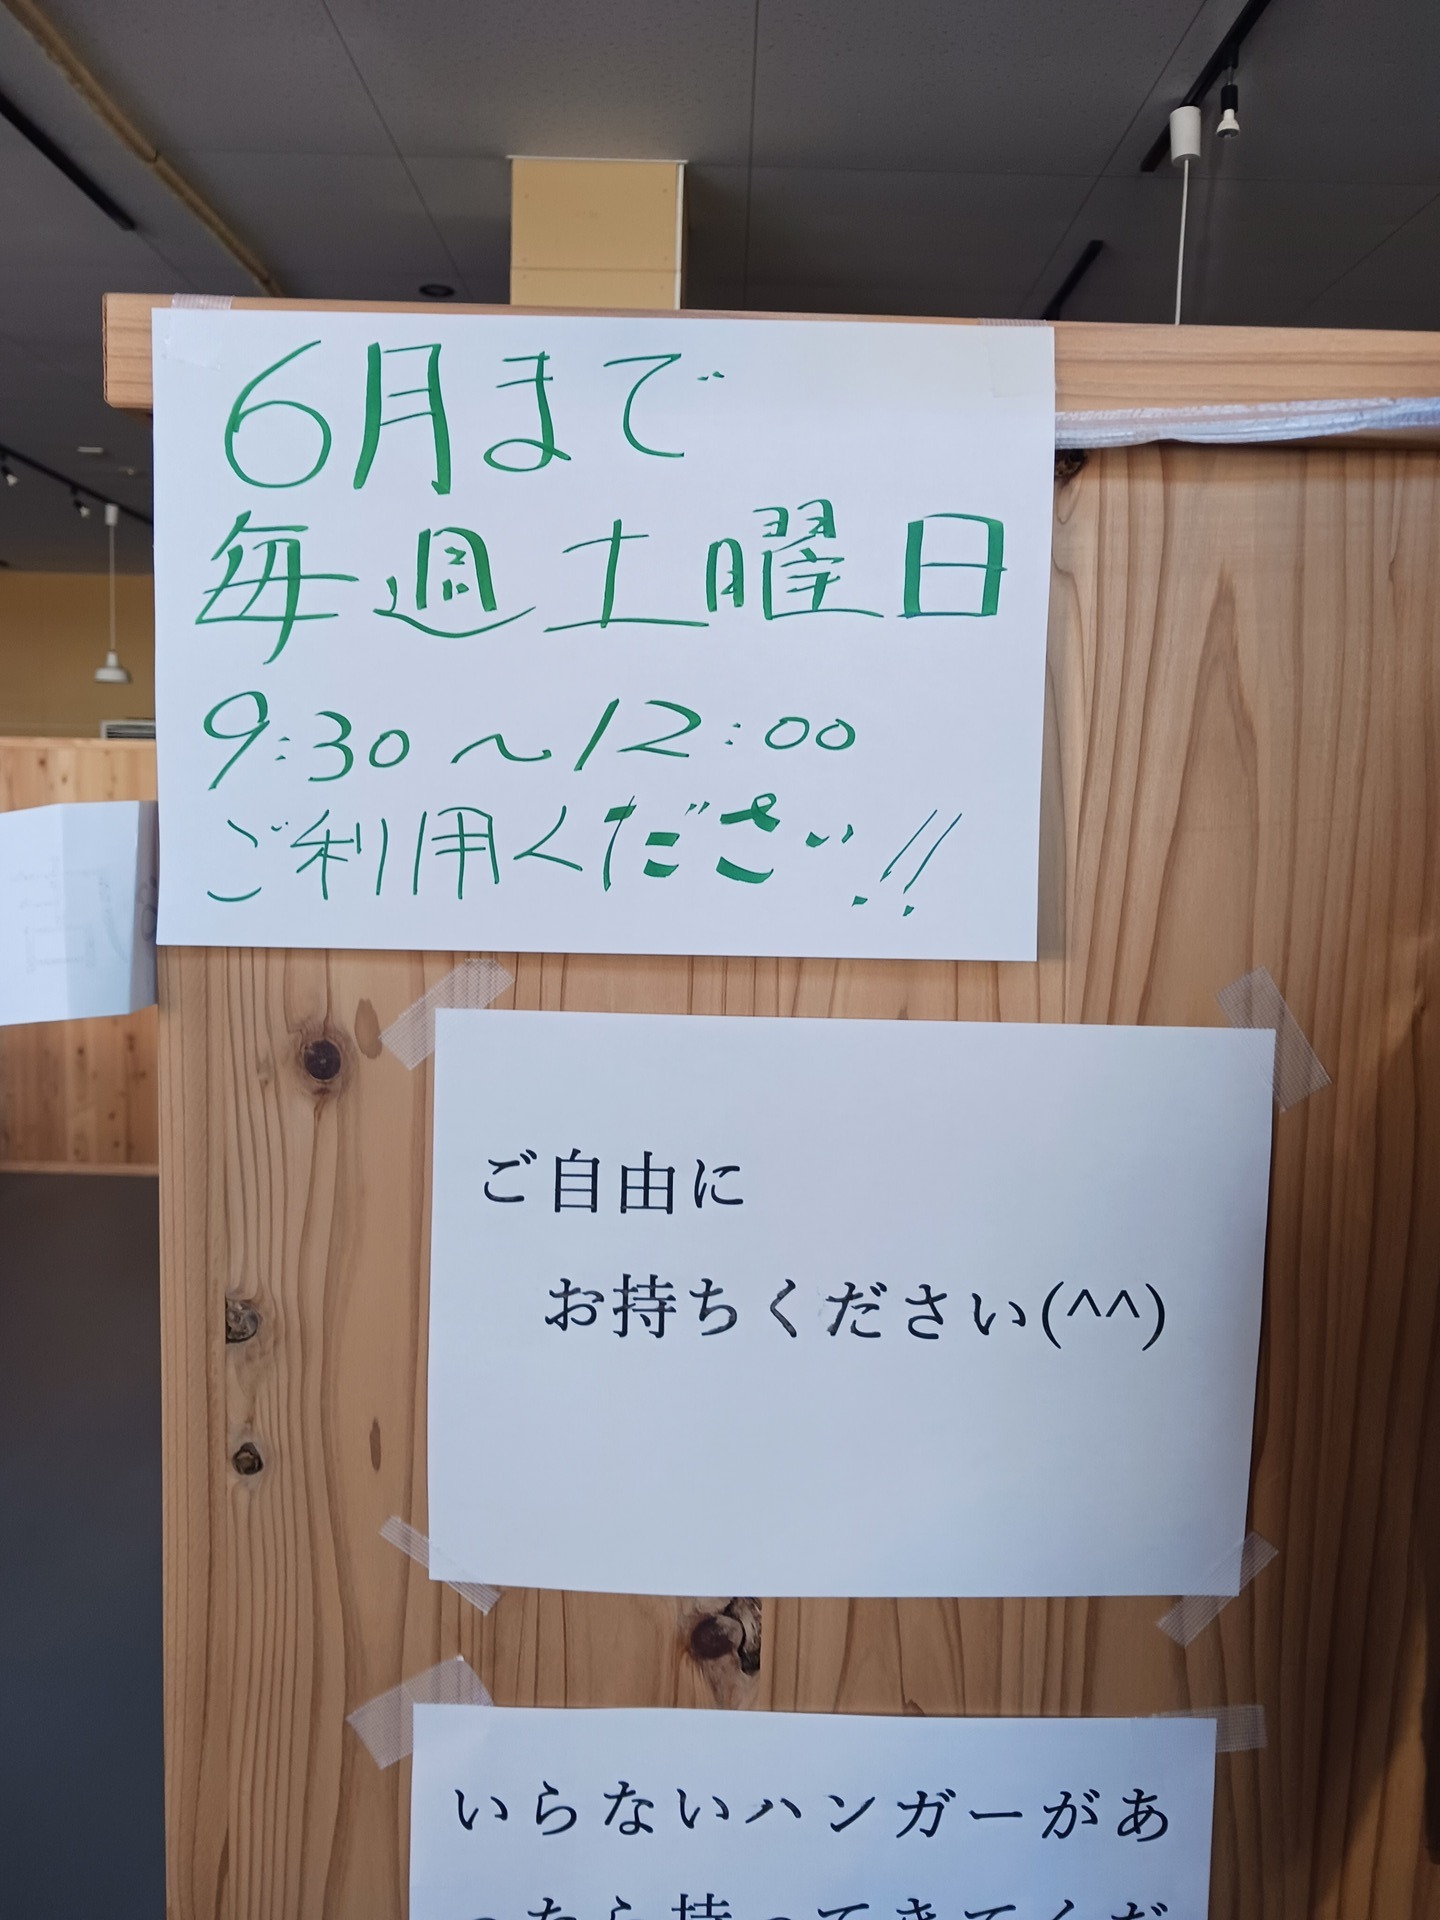 6月まで
毎週土曜日
9:30〜12:00
ご利用ください!!
ご自由に
お持ちください(^^)
いらないハンガーがあ
ったら持ってきてくだ